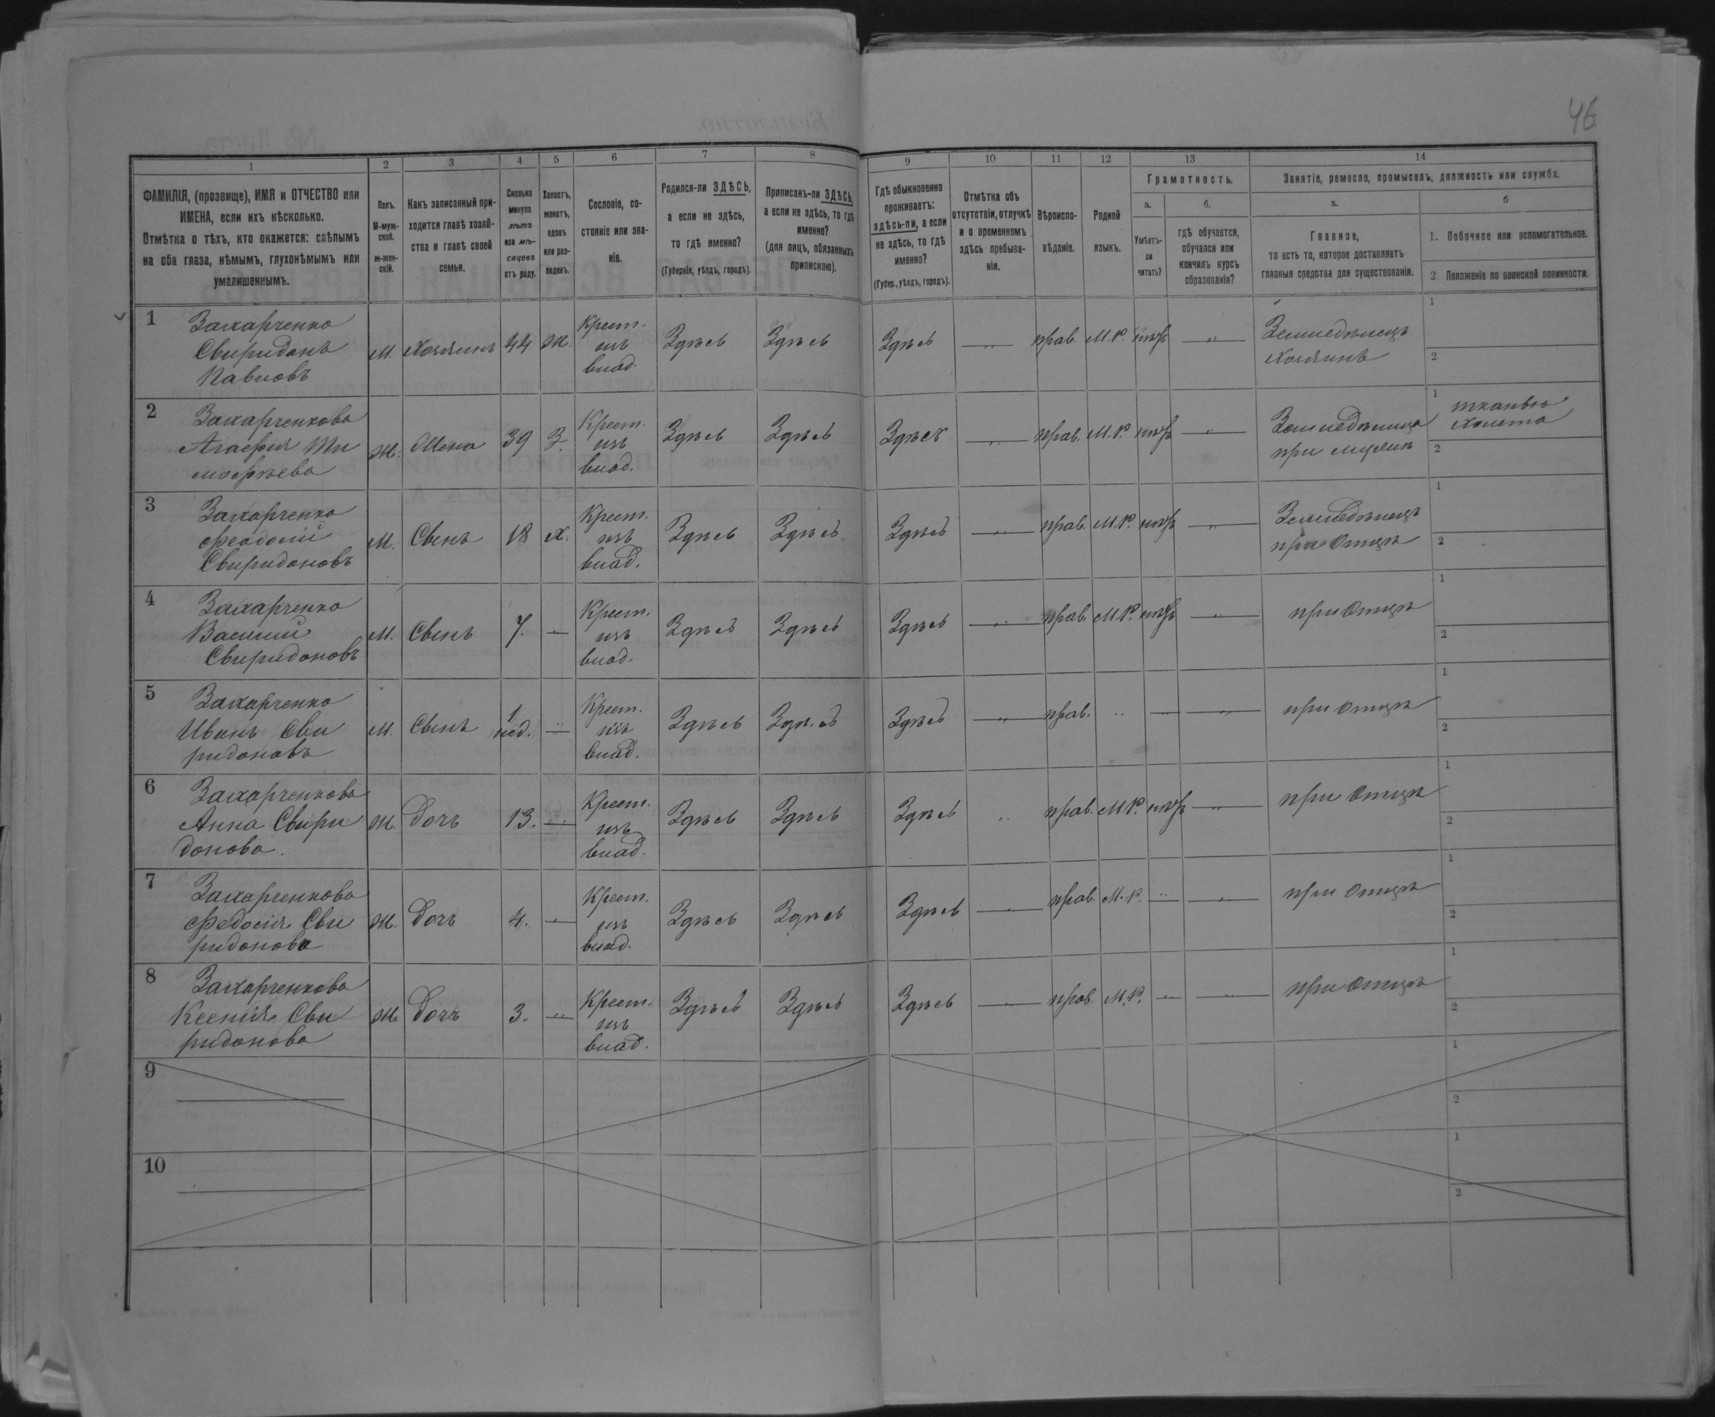 46
1 2 3 4 5 6 7 8 9 10 11 12 13 14
ФАМИЛІЯ, (прозвище), ИМЯ и ОТЧЕСТВО или
ИМЕНА, если ихъ нѣсколько.
Отмѣтка о тѣхъ, кто окажется: слѣпымъ
на оба глаза, нѣмымъ, глухонѣмымъ или
умалишеннымъ.
Полъ.
М-муж-
ской.
Ж-жен-
скій.
Какъ записанный при-
ходится главѣ хозяй-
ства и главѣ своей
семьи.
Сколько
минуло
лѣтъ
или мѣ-
сяцевъ
отъ роду.
Холостъ,
женатъ,
вдовъ
или раз-
веденъ.
Сословіе, со-
стояніе или зва-
ніе.
Родился-ли ЗДѢСЬ,
а если не здѣсь,
то гдѣ именно?
(Губернія, уѣздъ, городъ).
Приписанъ-ли ЗДѢСЬ,
а если не здѣсь, то гдѣ
именно?
(для лицъ, обязанныхъ
припискою).
Гдѣ обыкновенно
проживаетъ:
здѣсь-ли, а если
не здѣсь, то гдѣ
именно?
(Губер., уѣздъ, городъ).
Отмѣтка объ
отсутствіи, отлучкѣ
и о временномъ
здѣсь пребыва-
ніи.
Вѣроиспо-
вѣданіе.
Родной
языкъ.
Грамотность.
а.
Умѣетъ-
ли
читать?
б.
гдѣ обучается,
обучался или
кончилъ курсъ
образованія?
Занятіе, ремесло, промыселъ, должность или служба.
а.
Главное,
то есть то, которое доставляетъ
главныя средства для существованія.
б
1. Побочное или вспомогательное.
2 Положеніе по воинской повинности.
1 Захарченко
Свиридонъ
Павловъ
М. Хозяинъ 44 Ж. Крест.
изъ
влад. Здѣсь Здѣсь Здѣсь — „ — прав. М.Р. нтъ — „ — Земледѣлецъ
хозяинъ 1
2
2 Захарченкова
Агафия Ти
мофѣева
Ж. Жена 39 З. Крест.
изъ
влад. Здѣсь Здѣсь Здѣсь — „ — прав. М.Р. нтъ — „ — Земледѣлица
при мужѣ 1 тканьѐ
холста
2
3 Захарченко
Феодосій
Свиридоновъ
М. Сынъ 18 Х. Крест.
изъ
влад. Здѣсь Здѣсь Здѣсь — „ — прав. М.Р. нтъ — „ — Земледѣлецъ
при Отцѣ 1
2
4 Захарченко
Василий
Свиридоновъ
М. Сынъ 7. — Крест.
изъ
влад. Здѣсь Здѣсь Здѣсь — „ — прав. М.Р. нтъ — „ — при Отцѣ 1
2
5 Захарченко
Иванъ Сви
ридоновъ
М. Сынъ 1
нед. — Крест.
изъ
влад. Здѣсь Здѣсь Здѣсь — „ — прав. „ — — „ — при Отцѣ 1
2
6 Захарченкова
Анна Свири
донова.
Ж. Дочъ 13. — Крест.
изъ
влад. Здѣсь Здѣсь Здѣсь „ прав. М.Р. нтъ — „ — при Отцѣ 1
2
7 Захарченкова
Федосія Сви
ридонова
Ж. Дочъ 4. — Крест.
изъ
влад. Здѣсь Здѣсь Здѣсь — „ — прав. М.Р. — „ — — „ — при Отцѣ 1
2
8 Захарченкова
Ксенія Сви
ридонова
Ж. Дочъ 3. — „ — Крест.
изъ
влад. Здѣсь Здѣсь Здѣсь — „ — прав. М.Р. — „ — — „ — при Отцѣ 1
2
9 1
2
10 1
2